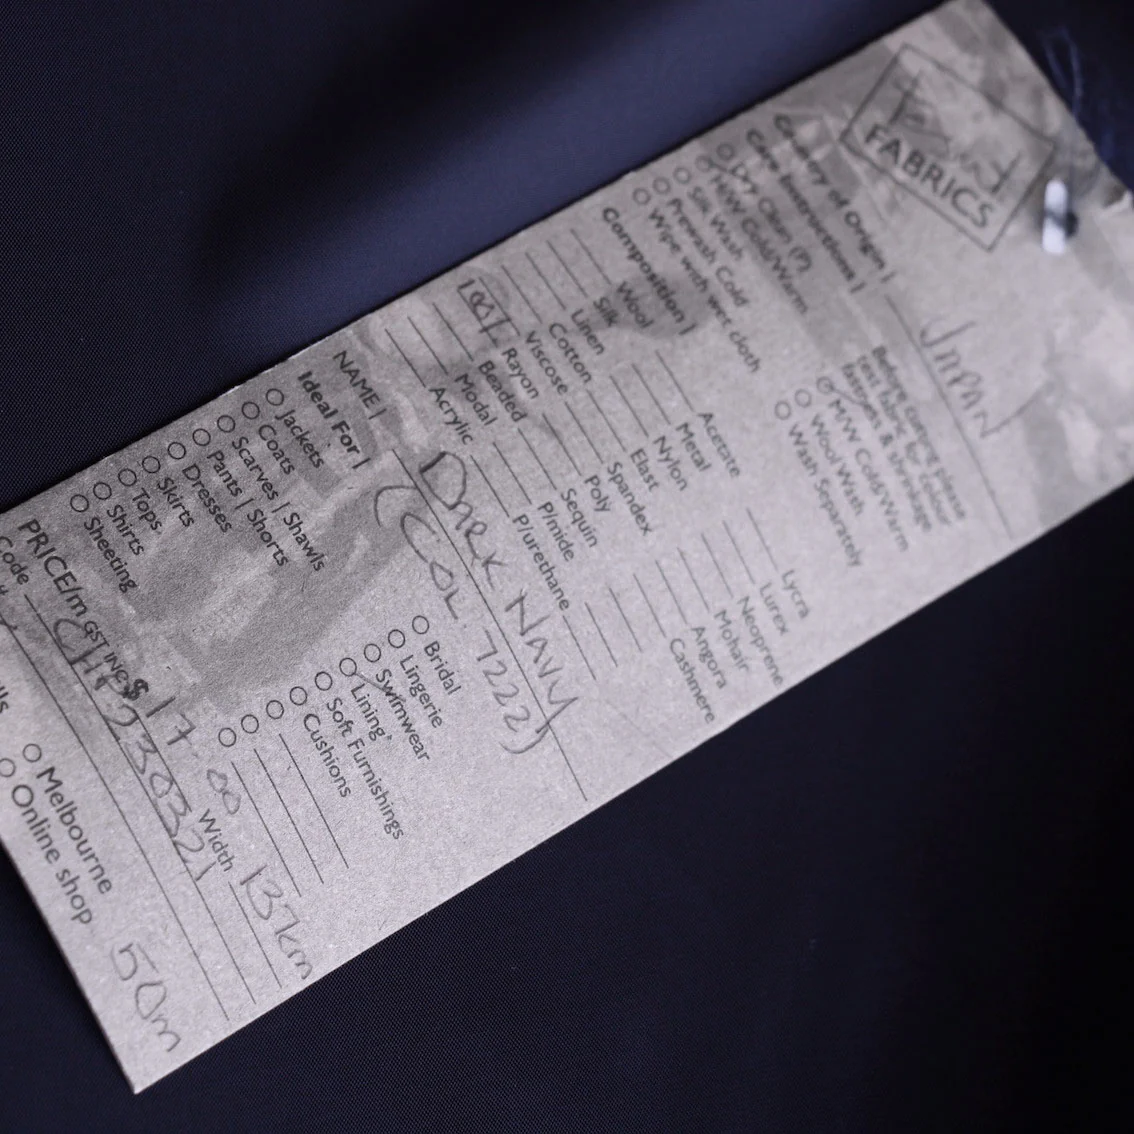 FABRICS
Country of Origin | JAPAN
Care Instructions |
Dry Clean (P)
H/W Cold/Warm
Silk Wash
Prewash Cold
Wipe with wet cloth
Before cutting please
test fabric for colour
fastness & shrinkage
M/W Cold/Warm
Wool Wash
Wash Separately
Composition |
Wool
Silk
Linen
Cotton
Viscose
100% Rayon
Beaded
Modal
Acrylic
Acetate
Metal
Nylon
Elast
Spandex
Poly
Sequin
P/mide
P/urethane
Lycra
Lurex
Neoprene
Mohair
Angora
Cashmere
NAME | DARK NAVY
(COL. 7222)
Ideal For |
Jackets
Coats
Scarves | Shawls
Pants | Shorts
Dresses
Skirts
Tops
Shirts
Sheeting
Bridal
Lingerie
Swimwear
Lining
Soft Furnishings
Cushions
PRICE/m GST INC $ 17.00 Width 137cm
Code CH230321
Melbourne
Online shop
50m